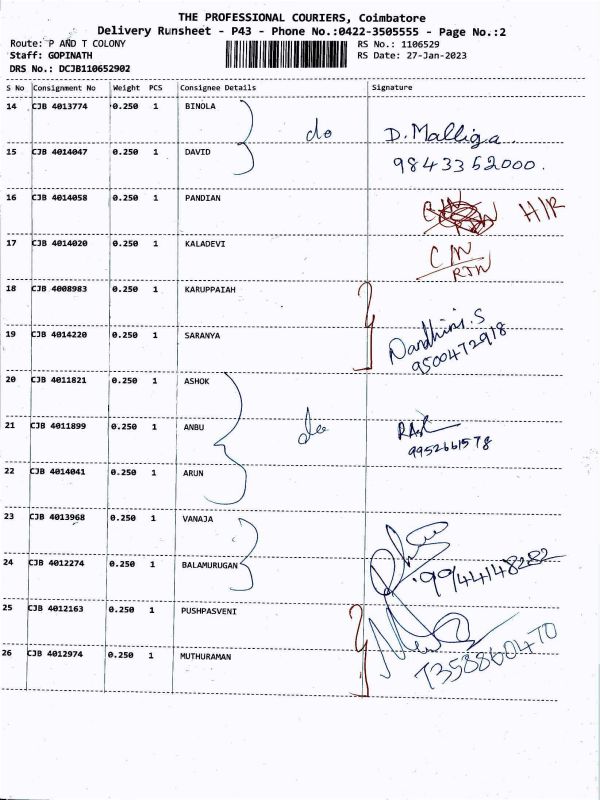 THE PROFESSIONAL COURIERS, Coimbatore
Delivery Runsheet - P43 - Phone No.:0422-3505555 - Page No.:2
Route: P AND T COLONY
RS No.: 1106529
Staff: GOPINATH
RS Date: 27-Jan-2023
DRS No.: DCJB110652902
S No Consignment No Weight PCS Consignee Details Signature
14 CJB 4013774 0.250 1 BINOLA
do D. Malliga
15 CJB 4014047 0.250 1 DAVID
9843352000.
16 CJB 4014058 0.250 1 PANDIAN
H/R
17 CJB 4014020 0.250 1 KALADEVI
CN
RTN
18 CJB 4008983 0.250 1 KARUPPAIAH
19 CJB 4014220 0.250 1 SARANYA
Nandhini.S
9500472918
20 CJB 4011821 0.250 1 ASHOK
21 CJB 4011899 0.250 1 ANBU
do
9952661578
22 CJB 4014041 0.250 1 ARUN
23 CJB 4013968 0.250 1 VANAJA
24 CJB 4012274 0.250 1 BALAMURUGAN
9944148282
25 CJB 4012163 0.250 1 PUSHPASVENI
26 CJB 4012974 0.250 1 MUTHURAMAN
7358860470